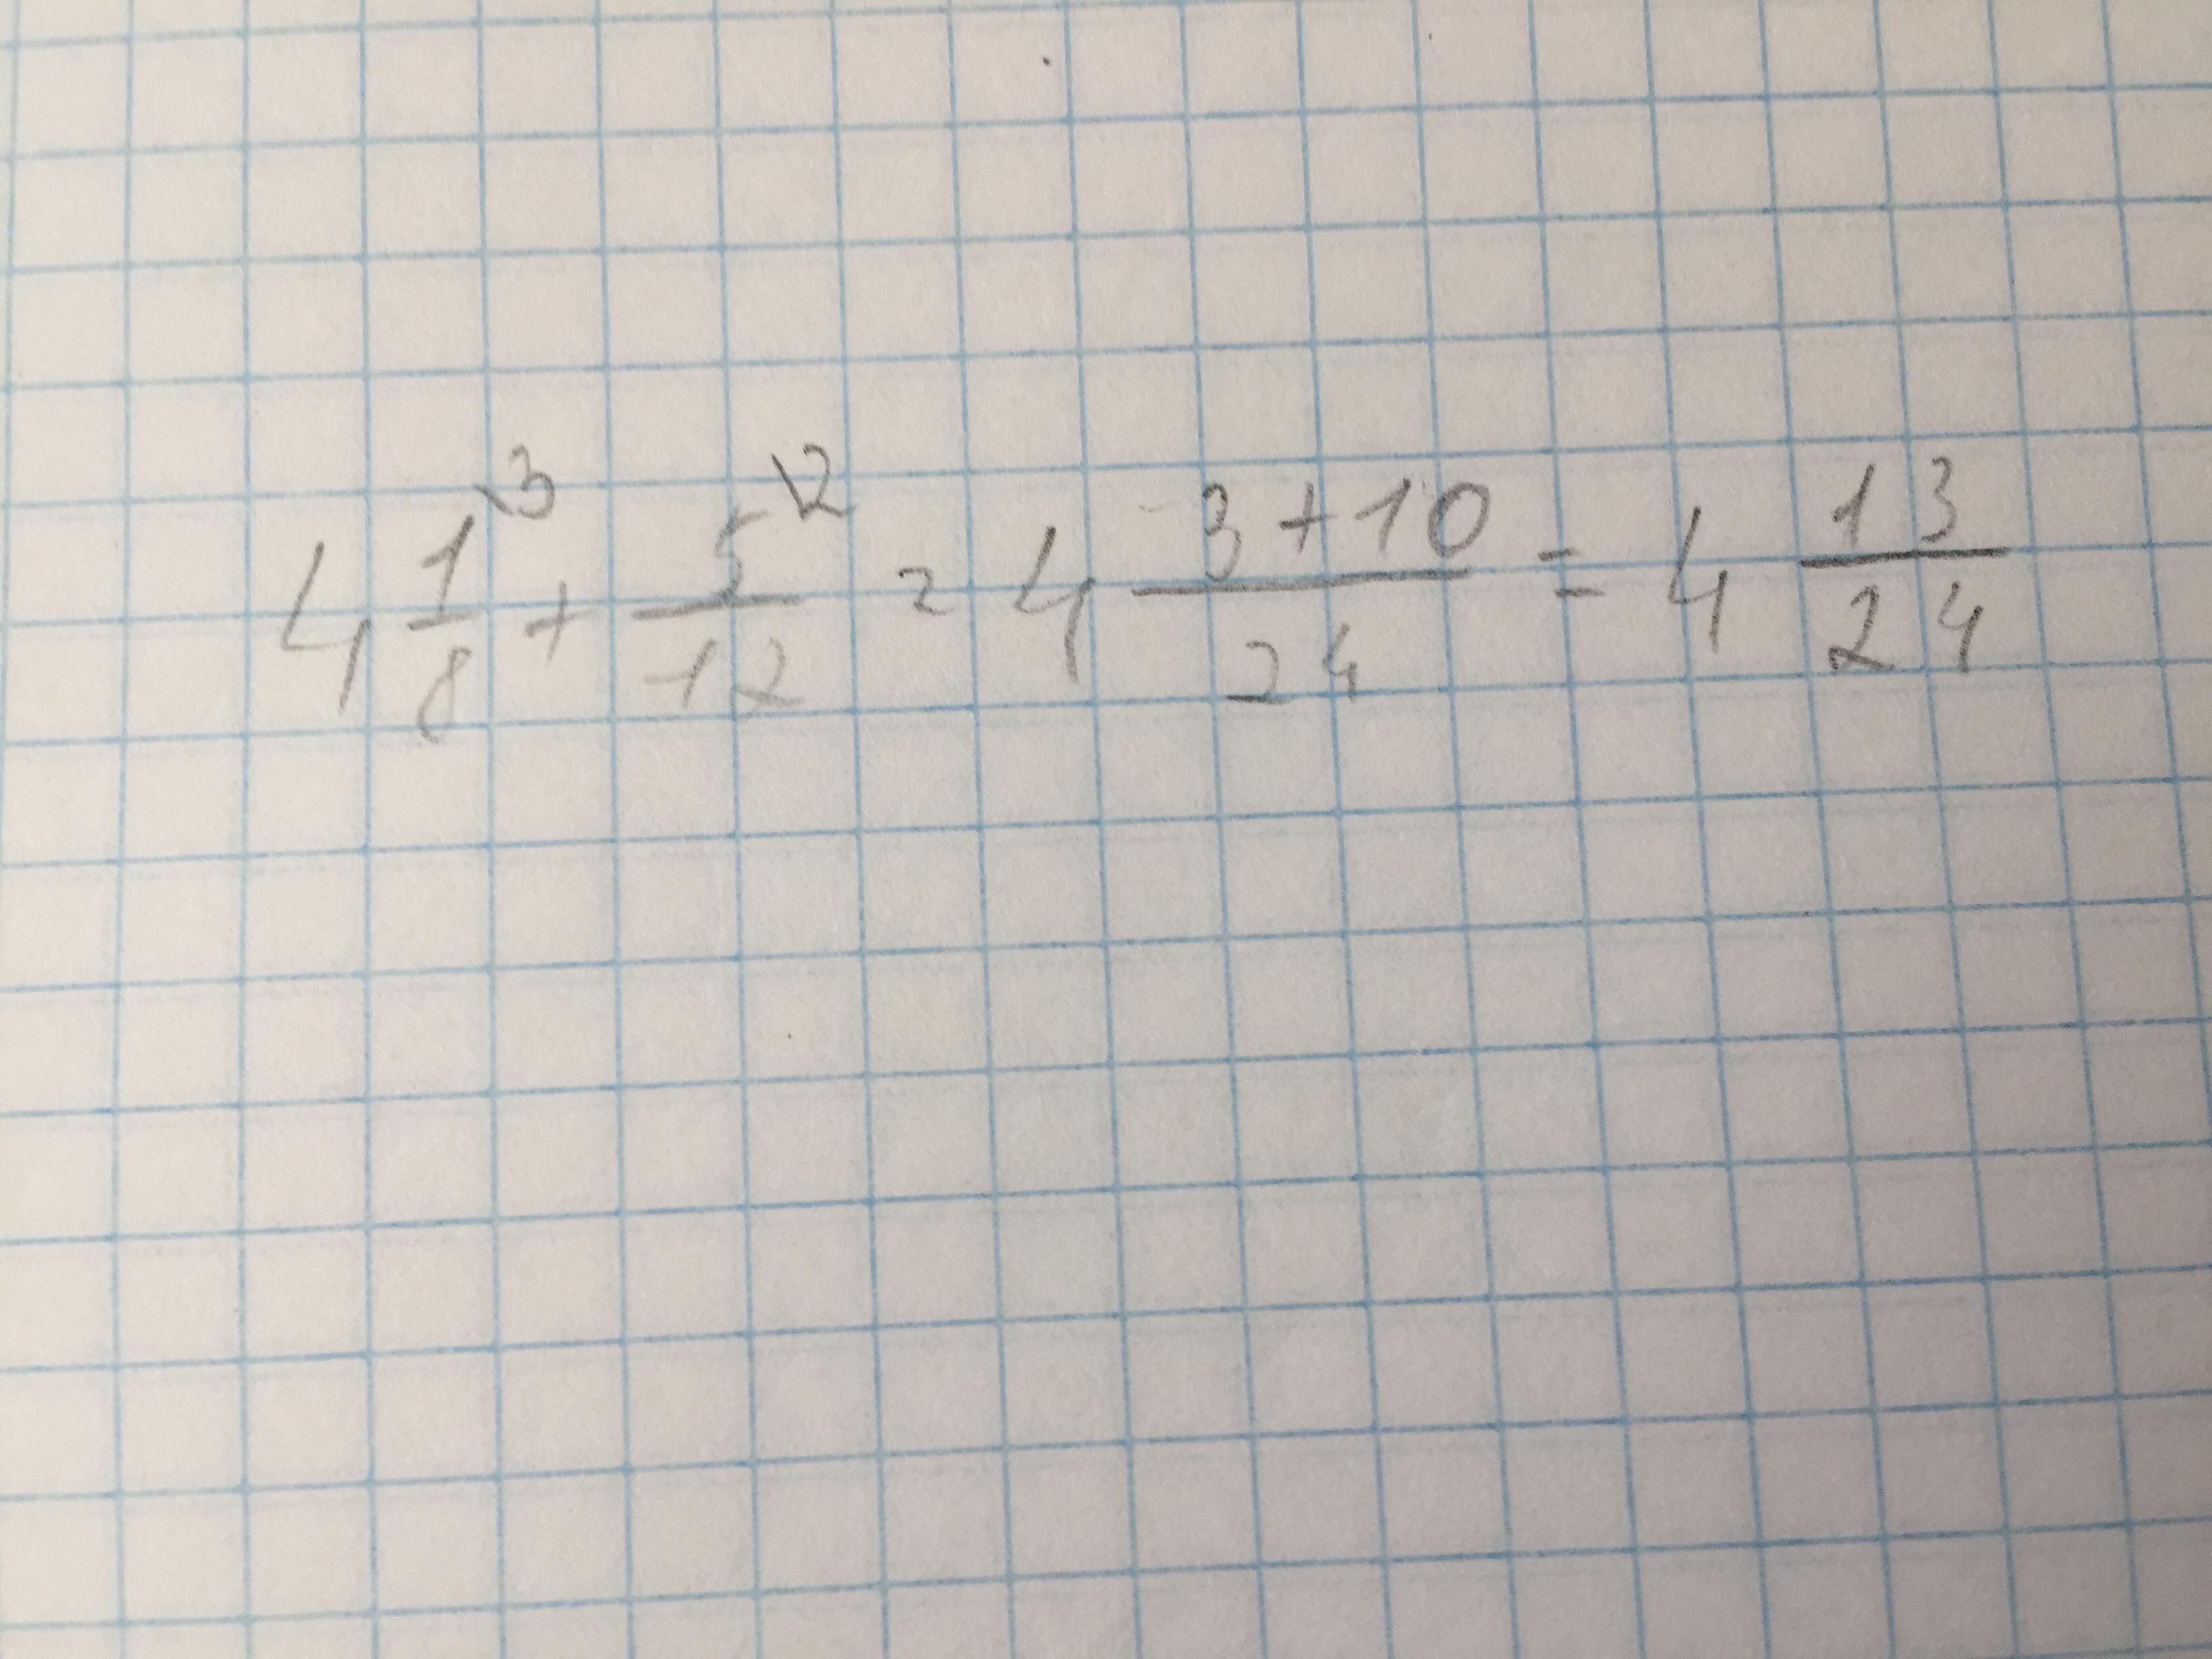 4 1/8 \3 + 5/12 \2 = 4 3+10/24 = 4 13/24